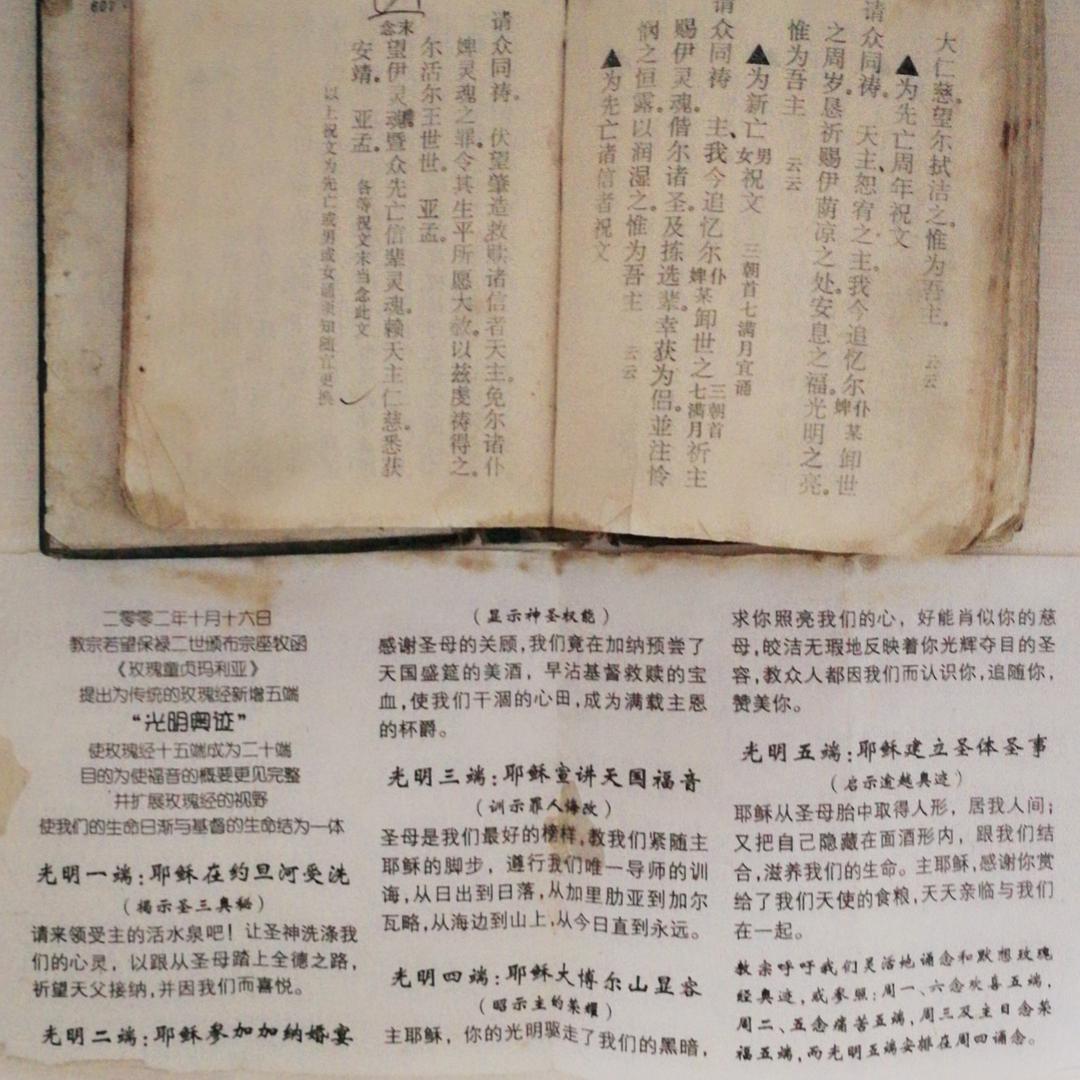 大仁慈。望尔拭洁之。惟为吾主。 云云
▲为先亡周年祝文
请众同祷。 天主、恕宥之主。我今追忆尔仆婢某卸世
之周岁。恳祈赐伊荫凉之处。安息之福。光明之亮。
惟为吾主 云云
▲为新亡男女祝文 三朝首七满月宜诵
请众同祷 主、我今追忆尔仆婢某卸世之三朝首七满月祈主
赐伊灵魂。偕尔诸圣。及拣选辈。幸获为侣。並注怜
悯之恒露。以润湿之。惟为吾主 云云
▲为先亡诸信者祝文
请众同祷。 伏望肇造救赎诸信者天主。免尔诸仆
婢灵魂之罪。令其生平所愿大赦。以兹虔祷得之。
尔活尔王世世。 亚孟。
末念
望伊灵魂暨众先亡信辈灵魂。赖天主仁慈。悉获
安靖。 亚孟。 各等祝文末当念此文
以上祝文为先亡或男或女诵须知随宜更换
607
二零零二年十月十六日
教宗若望保禄二世颁布宗座牧函
《玫瑰童贞玛利亚》
提出为传统的玫瑰经新增五端
“光明奥迹”
使玫瑰经十五端成为二十端
目的为使福音的概要更见完整
并扩展玫瑰经的视野
使我们的生命日渐与基督的生命结为一体
光明一端：耶稣在约旦河受洗
（揭示圣三奥秘）
请来领受主的活水泉吧！让圣神洗涤我
们的心灵，以跟从圣母踏上全德之路，
祈望天父接纳，并因我们而喜悦。
光明二端：耶稣参加加纳婚宴
（显示神圣权能）
感谢圣母的关顾，我们竟在加纳预尝了
天国盛筵的美酒，早沾基督救赎的宝
血，使我们干涸的心田，成为满载主恩
的杯爵。
光明三端：耶稣宣讲天国福音
（训示罪人悔改）
圣母是我们最好的榜样，教我们紧随主
耶稣的脚步，遵行我们唯一导师的训
海，从日出到日落，从加里肋亚到加尔
瓦略，从海边到山上，从今日直到永远。
光明四端：耶稣大博尔山显容
（昭示主的荣耀）
主耶稣，你的光明驱走了我们的黑暗，
求你照亮我们的心，好能肖似你的慈
母，皎洁无瑕地反映着你光辉夺目的圣
容，教众人都因我们而认识你，追随你，
赞美你。
光明五端：耶稣建立圣体圣事
（启示逾越奥迹）
耶稣从圣母胎中取得人形，居我人间；
又把自己隐藏在面酒形内，跟我们结
合，滋养我们的生命。主耶稣，感谢你赏
给了我们天使的食粮，天天亲临与我们
在一起。
教宗呼吁我们灵活地诵念和默想玫瑰
经奥迹，或参照：周一、六念欢喜五端，
周二、五念痛苦五端，周三及主日念荣
福五端，而光明五端安排在周四诵念。